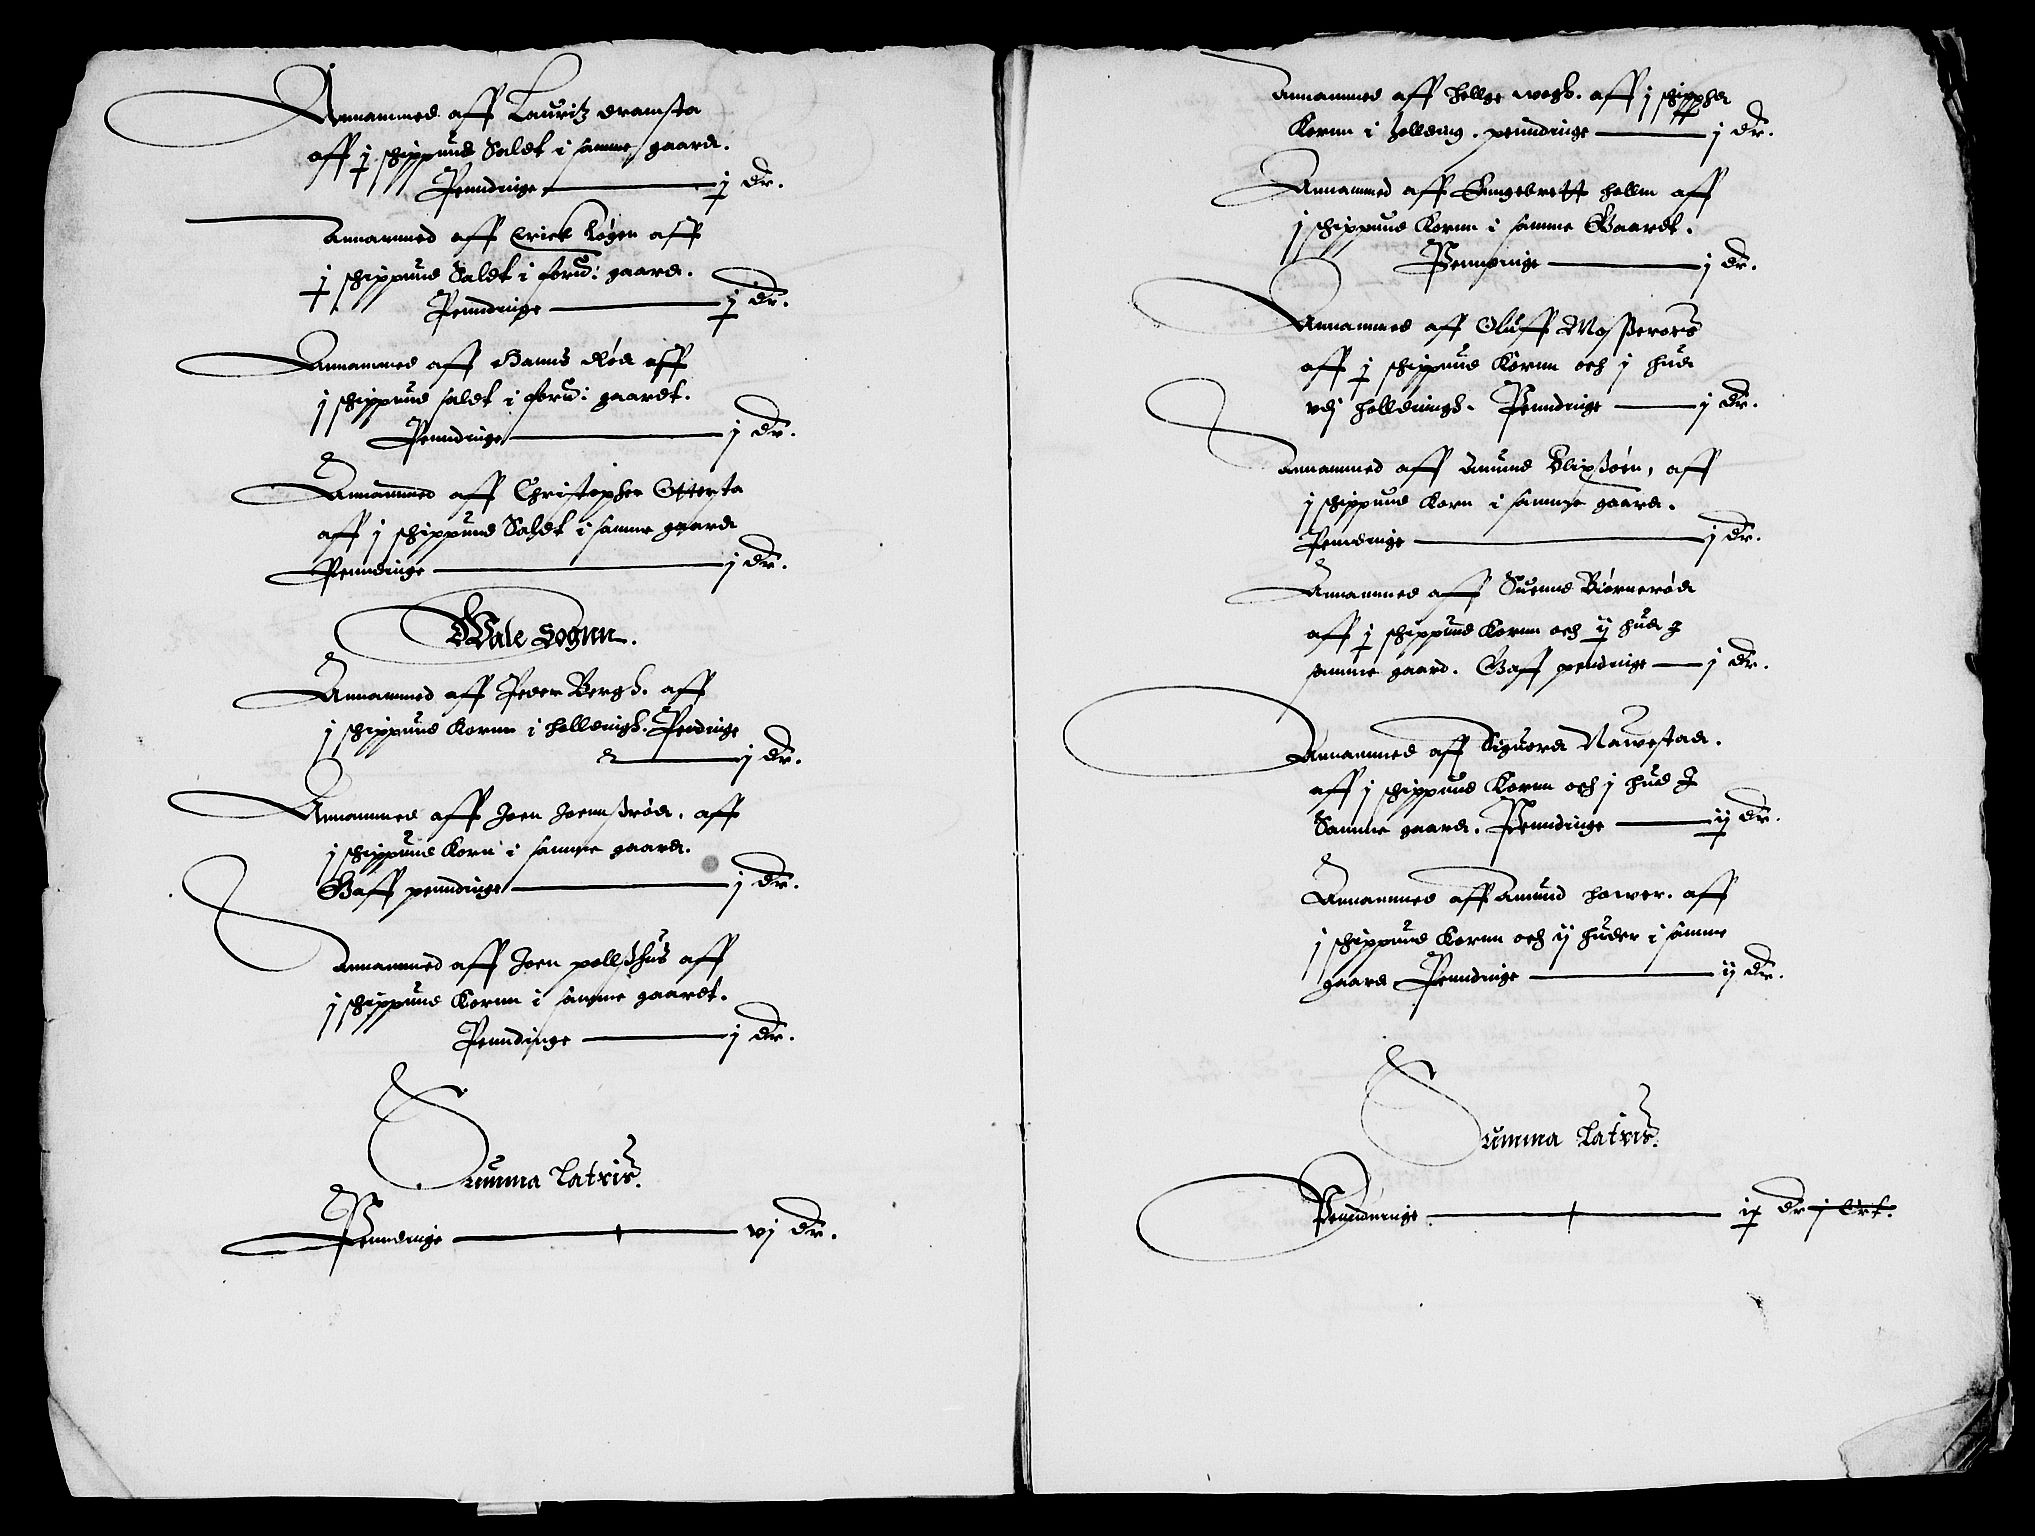 Annammed aff Lauritz dramsta
aff j schippund Saldt i samme gaard.
Penndinge j dr.
Annammed aff Erick Løgen aff
j schippund Saldt i forn: gaard.
Penndinge j dr.
Annammed aff Hanns Røed aff
j schippund saldt i forn: gaardt.
Penndinge j dr.
Annammed aff Christopher Ottersta
aff j schippund Saldt i samme gaard
Penndinge j dr.
Wale Sognn.
Annammed aff Peder Bergh. aff
j schippund Kornn i holldningh. Pendinge
j dr.
Annammed aff Joen Joennsrød. aff
j schippund Korn i samme gaard.
Gaff penndinge j dr.
Annammed aff Joen pollshus aff
j schippund Kornn i samme gaardt.
Penndinge j dr.
Summa Lateris.
Penndinge vj dr.
Annammed aff Hellge wegh. aff j schippund
Kornn i holldning. penndinge j dr.
Annammed aff Engebrett hollm aff
j schippund Kornn i samme Gaardt.
Penndinge j dr.
Annammed aff Oluff Mosserøes
aff j schippund Kornn och j hud
vdj holldningh. Penndinge j dr.
Annammed aff Amund aff
j schippund Korn i samme gaard.
Penndinge j dr.
Annammed aff Suennd Biørnerød
aff j schippund Kornn och ij hud I
samme gaard. Gaff pendinge j dr.
Annammed aff Siguord Nawestad.
aff j schippund Kornn och j hud I
Samme gaard. Penndinge ij dr.
Annammed aff Amund hower. aff
j schippund Kornn och ij huder i samme
gaard Penndinge ij dr.
Summa Lateris.
Penndninge ix dr j Ort.